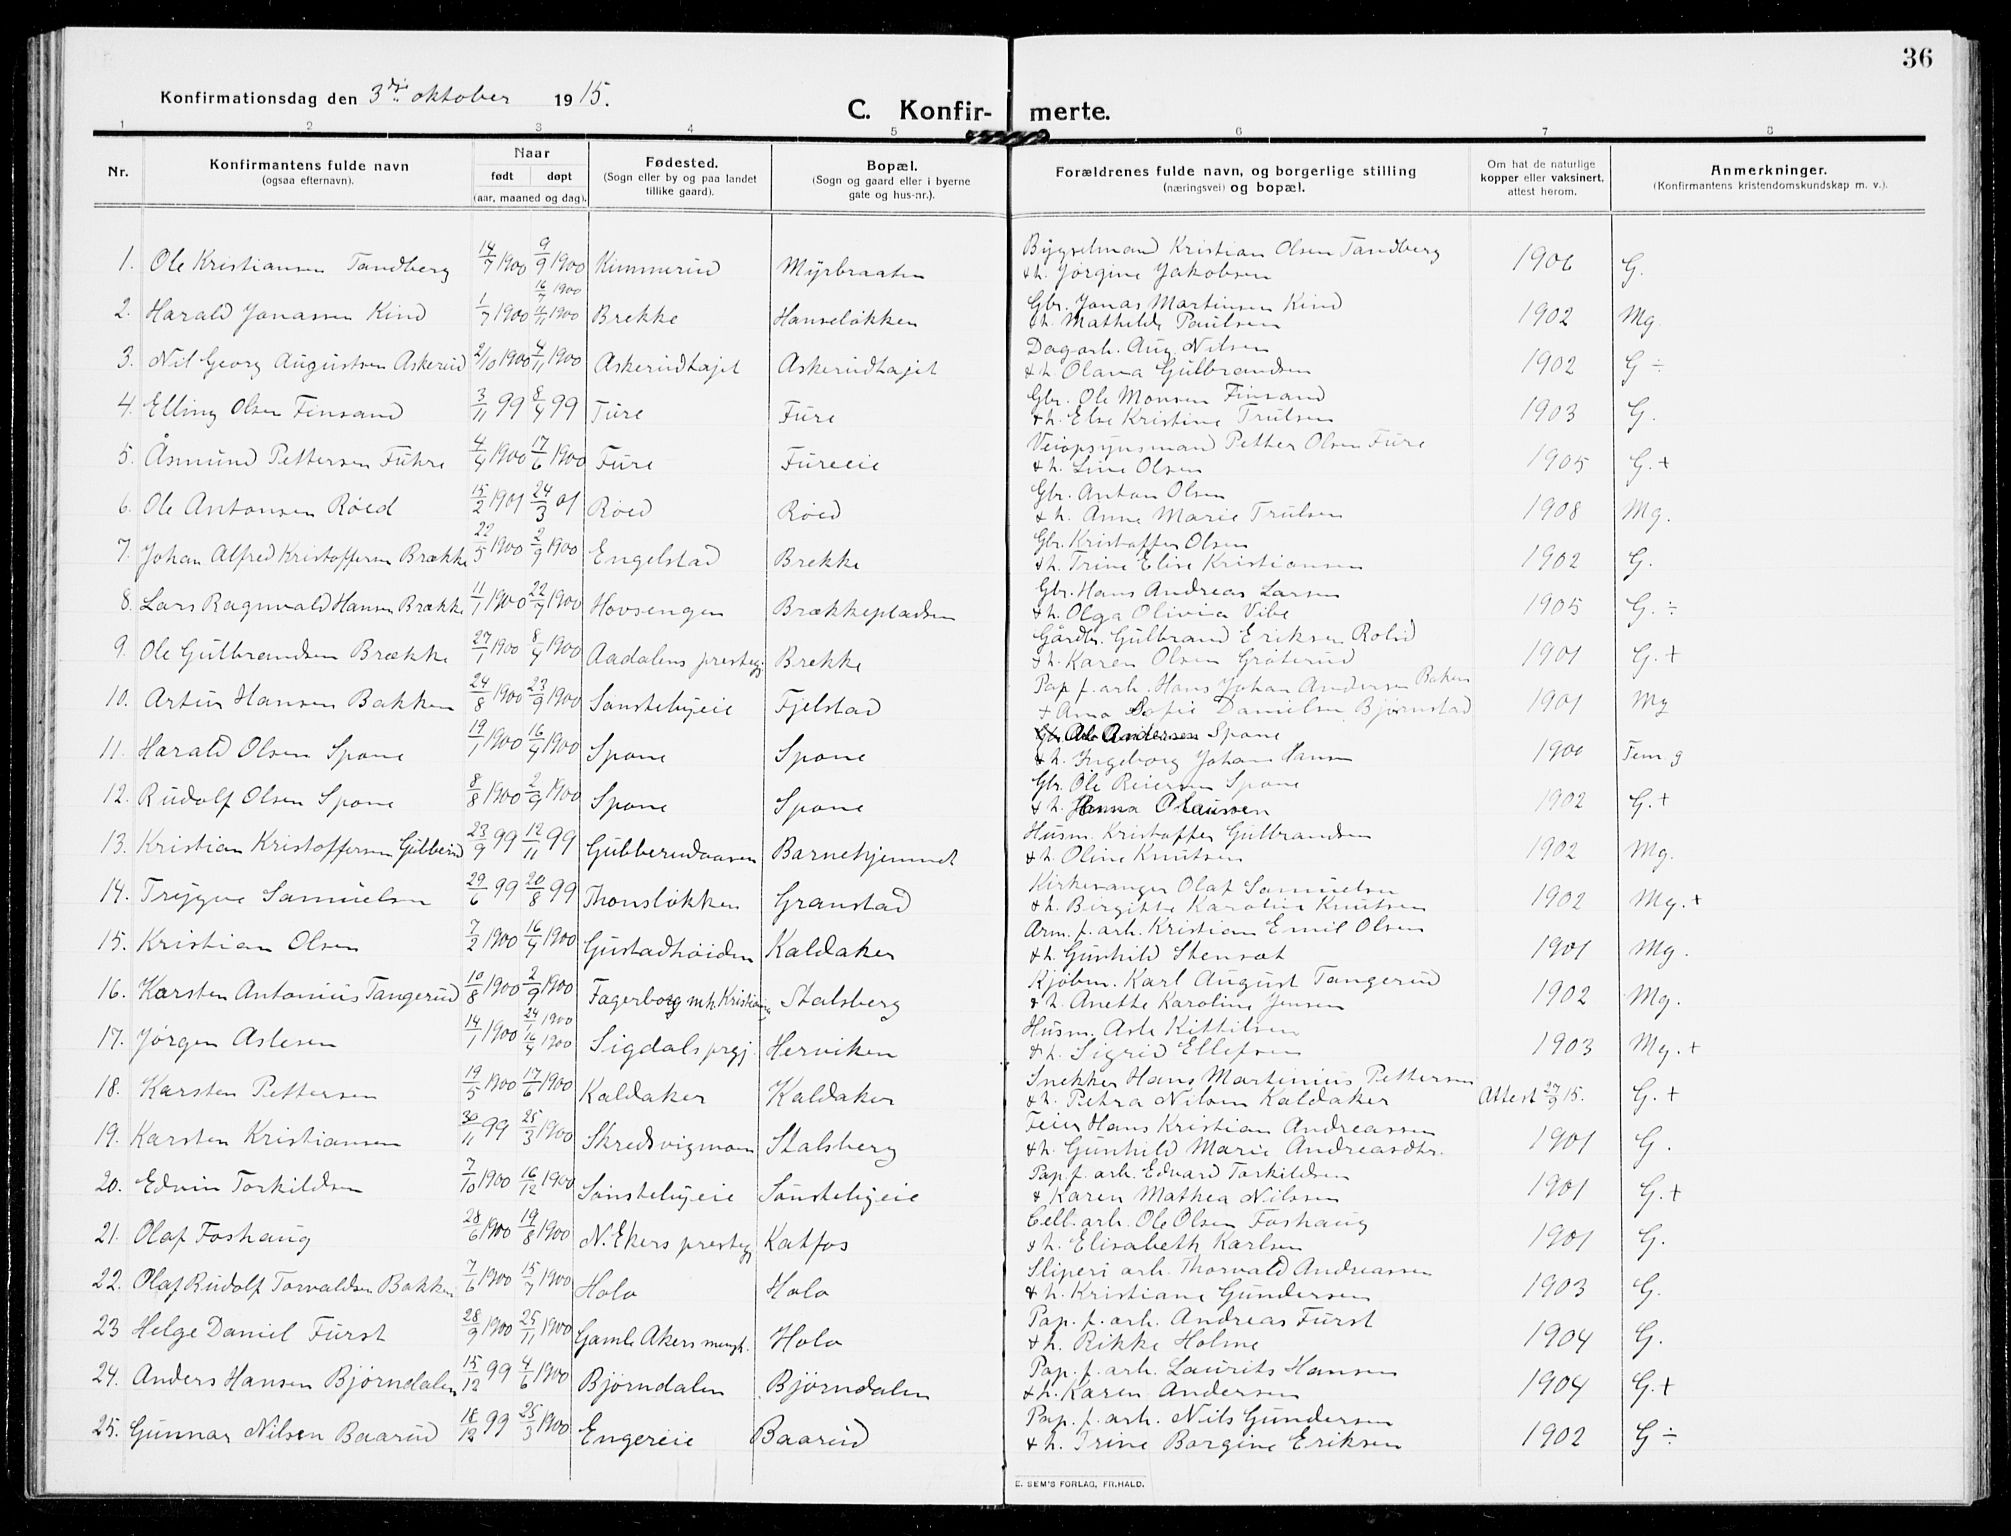 36
Konfirmationsdag den 3die oktober 1915.
C. Konfir- merte.
1 2 3 4 5 6 7 8
Nr. Konfirmantens fulde navn (ogsaa efternavn). Naar født døpt (aar, maaned og dag). Fødested. (Sogn eller by og paa landet tillike gaard). Bopæl. (Sogn og gaard eller i byerne gate og hus-nr.). Forældrenes fulde navn, og borgerlige stilling (næringsvei) og bopæl. Om hat de naturlige kopper eller vaksinert, attest herom. Anmerkninger. (Konfirmantens kristendomskundskap m. v.).
1. Ole Kristiansen Tandberg 14/7 1900 9/9 1900 Kimmerud Myrbraaten Bygselmand Kristian Olsen Tandberg 1906 G.
& h. Jørgine Jakobsen
2. Harald Jonassen Kind 1/7 1900 16/7 1900 4/11 1900 Brekke Hanseløkken Gbr. Jonas Martinsen Kind 1902 Mg.
& h. Mathilde Paulsen
3. Nil Georg Augustsen Askerud 2/10 1900 4/11 1900 Askerudhajet Askerudhajet Dagarb. Aug. Nilsen 1902 G ÷
& h. Olava Gulbrandsen
4. Elling Olsen Finsand 3/11 99 8/4 99 Ture Fure Gbr. Ole Monsen Finsand 1903 G.
& h. Else Kristine Trulsen
5. Åsmund Pettersen Fuhre 4/4 1900 17/6 1900 Fure Fureeie Veiopsynsmand Petter Olsen Fure 1905 G.+
& h. Line Olsen
6. Ole Antonsen Røed 15/2 1901 24/3 01 Røed Røed Gbr. Anton Olsen 1908 Mg.
& h. Anne Marie Trulsen
7. Johan Alfred Kristoffersen Brække 22/5 1900 2/9 1900 Engelstad Brekke Gbr. Kristoffer Olsen 1902 G.
& h. Trine Elise Kristiansen
8. Lars Ragnvald Hansen Brække 11/1 1900 22/7 1900 Hovsengen Brækkepladsen Gbr. Hans Andreas Larsen 1905 G. ÷
& h. Olga Olivia Vibe
9. Ole Gulbrandsen Brække 27/1 1900 8/4 1900 Aadalens presteg. Brekke Gårdbr. Gulbrand Eriksen Rolid 1901 G.+
& h. Karen Olsen Grøterud
10. Artur Hansen Bakken 24/8 1900 23/9 1900 Sønstebyeie Fjelstad Pap. f. arb. Hans Johan Andersen Baken 1901 Mg
+ Ana Sofie Danielsen Bjørnstad
11. Harald Olsen Spone 19/1 1900 16/4 1900 Spone Spone Gbr. Ole Andersen Spone 1900 Tem. g
& h. Ingeborg Johan Hansen
12. Rudolf Olsen Spone 8/8 1900 2/9 1900 Spone Spone Gbr. Ole Reiersen Spone 1902 G.+
& h. Hanna Olaussen
13. Kristian Kristoffersen Gubberud 23/9 99 12/11 99 Gubberudaasen Barnehjemmet Husm. Kristoffer Gulbrandsen 1902 Mg.
& h. Oline Knutsen
14. Trygve Samuelsen 29/6 99 20/8 99 Thonsløkken Granstad Kirkesanger Olaf Samuelsen 1902 Mg.+
& h. Birgitte Karoline Knutsen
15. Kristian Olsen 7/2 1900 16/4 1900 Gustadhøiden Kaldaker Arm. f. arb. Kristian Emil Olsen 1901 Mg.
& h. Gunhild Stensæt
16. Karsten Antonius Tangerud 10/8 1900 2/9 1900 Fagerborg mh. Kristiania Stalsberg Kjøbm. Karl August Tangerud 1902 Mg.
& h. Anette Karoline Jensen
17. Jørgen Aslesen 14/1 1900 24/1 1900 16/4 1900 Sigdals prgj. Herviken Husm. Asle Kittilsen 1903 Mg.+
& h. Sigrid Ellefsen
18. Karsten Pettersen 19/5 1900 17/6 1900 Kaldaker Kaldaker Snekker Hans Martinius Pettersen Attest 27/9 15. G.+
& h. Petra Nilsen Kaldaker
19. Karsten Kristiansen 30/11 99 25/3 1900 Skredsvigmoen Stalsberg Feier Hans Kristian Andreassen 1901 G.
& h. Gunhild Marie Andreasdtr.
20. Edvin Torkildsen 7/10 1900 16/12 1900 Sønstebyeie Sønstebyeie Pap. f. arb. Edvard Torkildsen 1901 G.+
& Karen Mathea Nilssen
21. Olaf Foshaug 28/6 1900 19/8 1900 N. Ekers presteg. Katfos Cell. arb. Ole Olsen Foshaug 1901 G.
& h. Elisabeth Karlsen
22. Olaf Rudolf Torvaldsen Bakken 7/6 1900 15/7 1900 Holo Holo Sliperi arb. Thorvald Andreassen 1903 G.
& h. Kristiane Gundersen
23 Helge Daniel Furst 28/9 1900 25/11 1900 Gamle Akers mengh. Holo Pap. f. arb. Andreas Furst 1904 G.
& h. Rikke Holme
24. Anders Hansen Bjørndalen 15/12 99 4/6 1900 Bjørndalen Bjørndalen Pap. f. arb. Laurits Hansen 1904 G.+
& h. Karen Andersen
25. Gunnar Nilsen Baarud 18/12 99 25/3 1900 Engereie Baarud Pap. f. arb. Nils Gundersen 1902 G ÷
& h. Trine Borgine Eriksen
E. SEM'S FORLAG, FR.HALD.